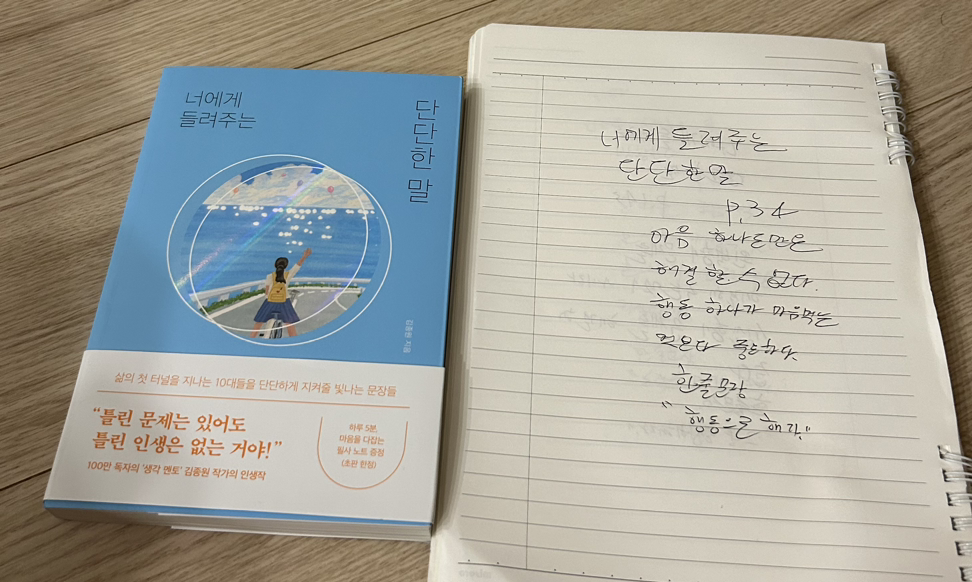 너에게
들려주는
단단한 말
김종원 지음
삶의 첫 터널을 지나는 10대들을 단단하게 지켜줄 빛나는 문장들
“틀린 문제는 있어도
틀린 인생은 없는 거야!”
100만 독자의 '생각 멘토' 김종원 작가의 인생작
하루 5분,
마음을 다잡는
필사 노트 증정
(초판 한정)
너에게 들려주는
단단한 말
p.34
마음 하나로만은
해결 할 수 없다.
행동 하나가 마음먹는
것보다 중요하다.
한줄문장
"행동으로 해라."